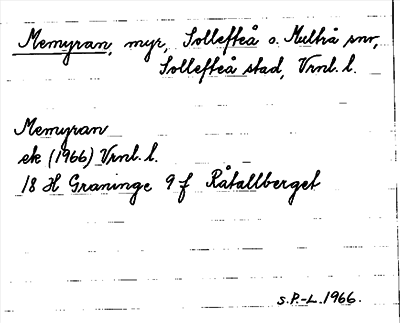 Memyran, myr, Sollefteå o. Multrå snr,
Sollefteå stad, Vrnl. l.
Memyran
ek (1966) Vrnl. l.
18 H Graninge 9 f Råtallberget
s.P.-L.1966.